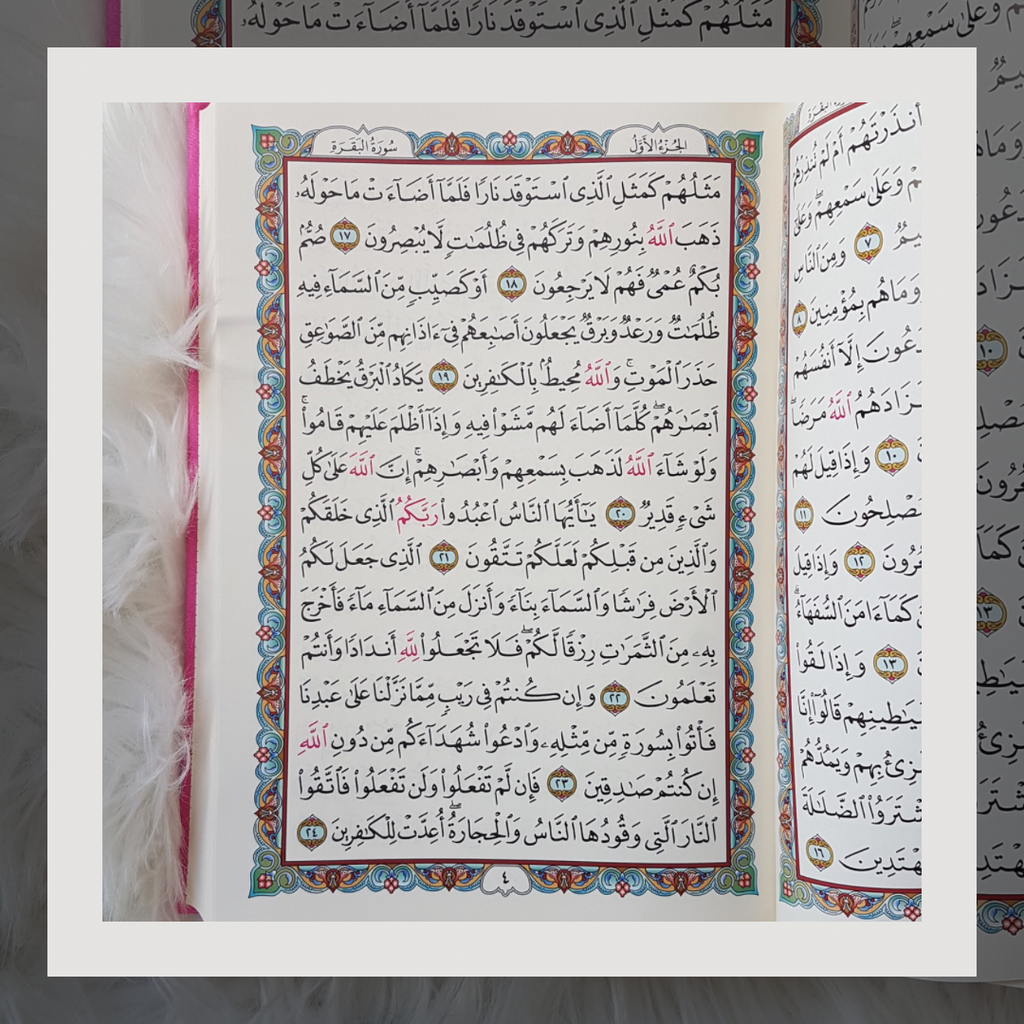 الجُزْءُ الأَوَّلُ
سُورَةُ البَقَرَةِ
مَثَلُهُمْ كَمَثَلِ ٱلَّذِى ٱسْتَوْقَدَ نَارًا فَلَمَّآ أَضَآءَتْ مَا حَوْلَهُۥ
ذَهَبَ ٱللَّهُ بِنُورِهِمْ وَتَرَكَهُمْ فِى ظُلُمَـٰتٍ لَّا يُبْصِرُونَ ١٧ صُمٌّۢ
بُكْمٌ عُمْىٌ فَهُمْ لَا يَرْجِعُونَ ١٨ أَوْ كَصَيِّبٍ مِّنَ ٱلسَّمَآءِ فِيهِ
ظُلُمَـٰتٌ وَرَعْدٌ وَبَرْقٌ يَجْعَلُونَ أَصَـٰبِعَهُمْ فِىٓ ءَاذَانِهِم مِّنَ ٱلصَّوَٰعِقِ
حَذَرَ ٱلْمَوْتِ ۚ وَٱللَّهُ مُحِيطٌۢ بِٱلْكَـٰفِرِينَ ١٩ يَكَادُ ٱلْبَرْقُ يَخْطَفُ
أَبْصَـٰرَهُمْ ۖ كُلَّمَآ أَضَآءَ لَهُم مَّشَوْا۟ فِيهِ وَإِذَآ أَظْلَمَ عَلَيْهِمْ قَامُوا۟ ۚ
وَلَوْ شَآءَ ٱللَّهُ لَذَهَبَ بِسَمْعِهِمْ وَأَبْصَـٰرِهِمْ ۚ إِنَّ ٱللَّهَ عَلَىٰ كُلِّ
شَىْءٍ قَدِيرٌ ٢٠ يَـٰٓأَيُّهَا ٱلنَّاسُ ٱعْبُدُوا۟ رَبَّكُمُ ٱلَّذِى خَلَقَكُمْ
وَٱلَّذِينَ مِن قَبْلِكُمْ لَعَلَّكُمْ تَتَّقُونَ ٢١ ٱلَّذِى جَعَلَ لَكُمُ
ٱلْأَرْضَ فِرَٰشًا وَٱلسَّمَآءَ بِنَآءً وَأَنزَلَ مِنَ ٱلسَّمَآءِ مَآءً فَأَخْرَجَ
بِهِۦ مِنَ ٱلثَّمَرَٰتِ رِزْقًا لَّكُمْ ۖ فَلَا تَجْعَلُوا۟ لِلَّهِ أَندَادًا وَأَنتُمْ
تَعْلَمُونَ ٢٢ وَإِن كُنتُمْ فِى رَيْبٍ مِّمَّا نَزَّلْنَا عَلَىٰ عَبْدِنَا
فَأْتُوا۟ بِسُورَةٍ مِّن مِّثْلِهِۦ وَٱدْعُوا۟ شُهَدَآءَكُم مِّن دُونِ ٱللَّهِ
إِن كُنتُمْ صَـٰدِقِينَ ٢٣ فَإِن لَّمْ تَفْعَلُوا۟ وَلَن تَفْعَلُوا۟ فَٱتَّقُوا۟
ٱلنَّارَ ٱلَّتِى وَقُودُهَا ٱلنَّاسُ وَٱلْحِجَارَةُ ۖ أُعِدَّتْ لِلْكَـٰفِرِينَ ٢٤
٤
أَنذَرْتَهُمْ أَمْ لَمْ تُنذِرْهُمْ
وَعَلَىٰ سَمْعِهِمْ ۖ وَعَلَىٰٓ
٧ وَمِنَ ٱلنَّاسِ
وَمَا هُم بِمُؤْمِنِينَ ٨
إِلَّآ أَنفُسَهُمْ
ٱللَّهُ مَرَضًا ۖ
١٠ وَإِذَا قِيلَ لَهُمْ
١١
١٢ وَإِذَا قِيلَ
كَمَآ ءَامَنَ ٱلسُّفَهَآءُ ۗ
١٣ وَإِذَا لَقُوا۟
قَالُوٓا۟ إِنَّا
بِهِمْ وَيَمُدُّهُمْ
ٱلضَّلَـٰلَةَ
١٦